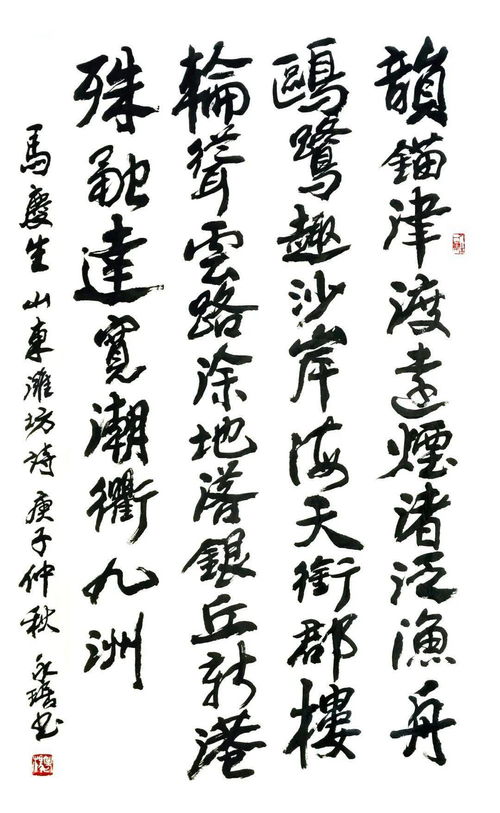 韻錨津渡遠煙渚泛漁舟
鷗鷺趣沙岸海天銜郡樓
輪聳雲路涂地落銀丘新港
殊融達寬潮衢九洲
馬慶生山東濰坊詩庚子仲秋永書